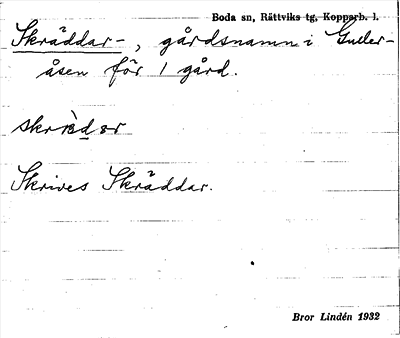 Boda sn, Rättviks tg, Kopparb. l.
Skräddar-, gårdsnamn i Guller-
åsen för 1 gård.
Skrives Skräddar.
Bror Lindén 1932